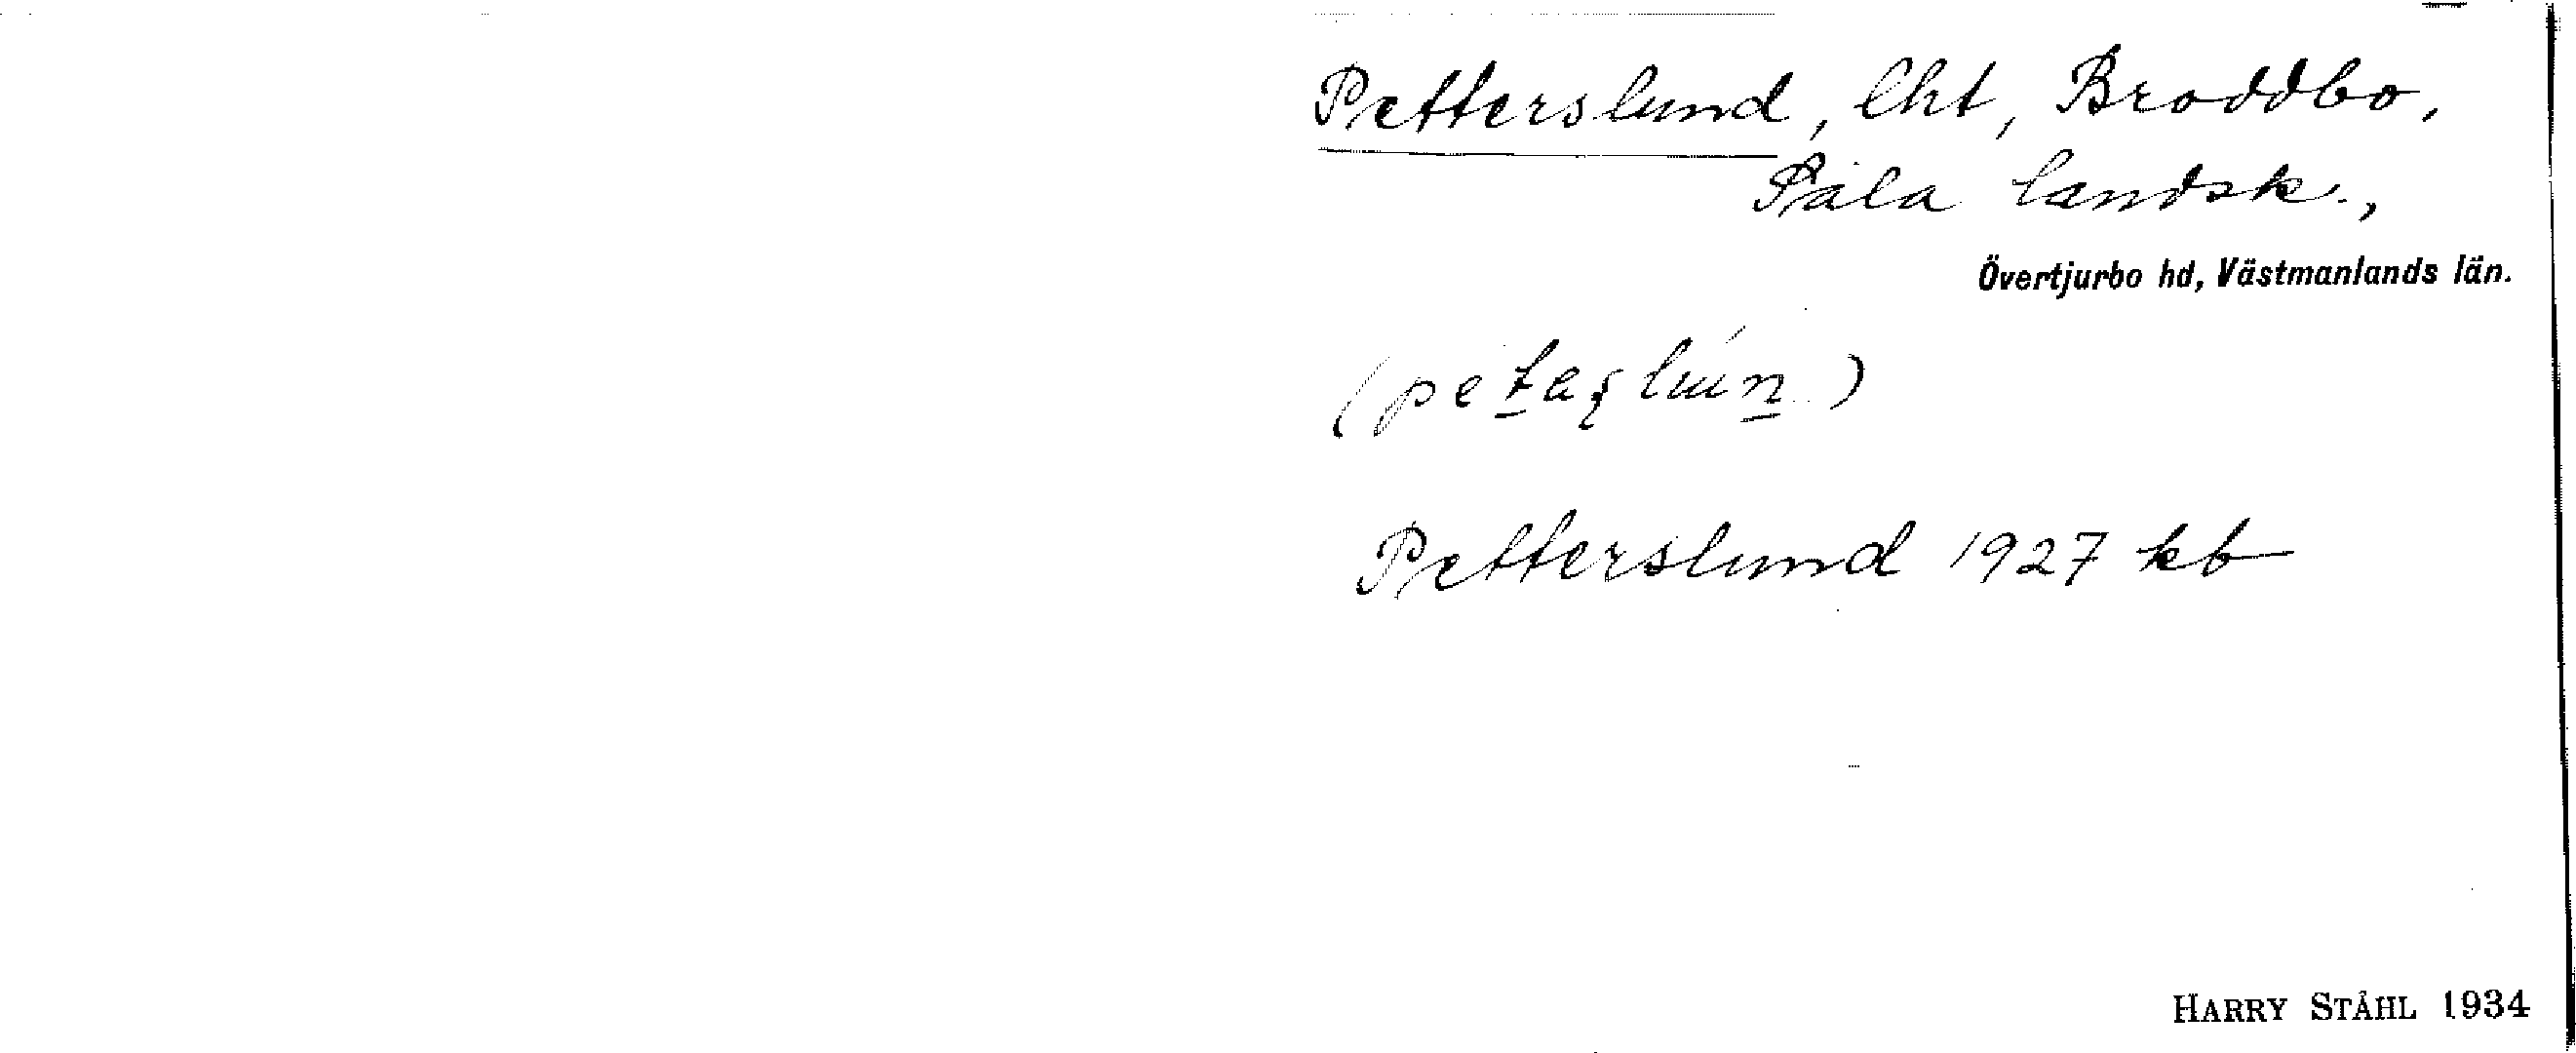 Petterslund, lht, Broddbo,
Sala landsk.,
Övertjurbo hd, Västmanlands län.
Petterslund 1927 kb
HARRY STÅHL 1934